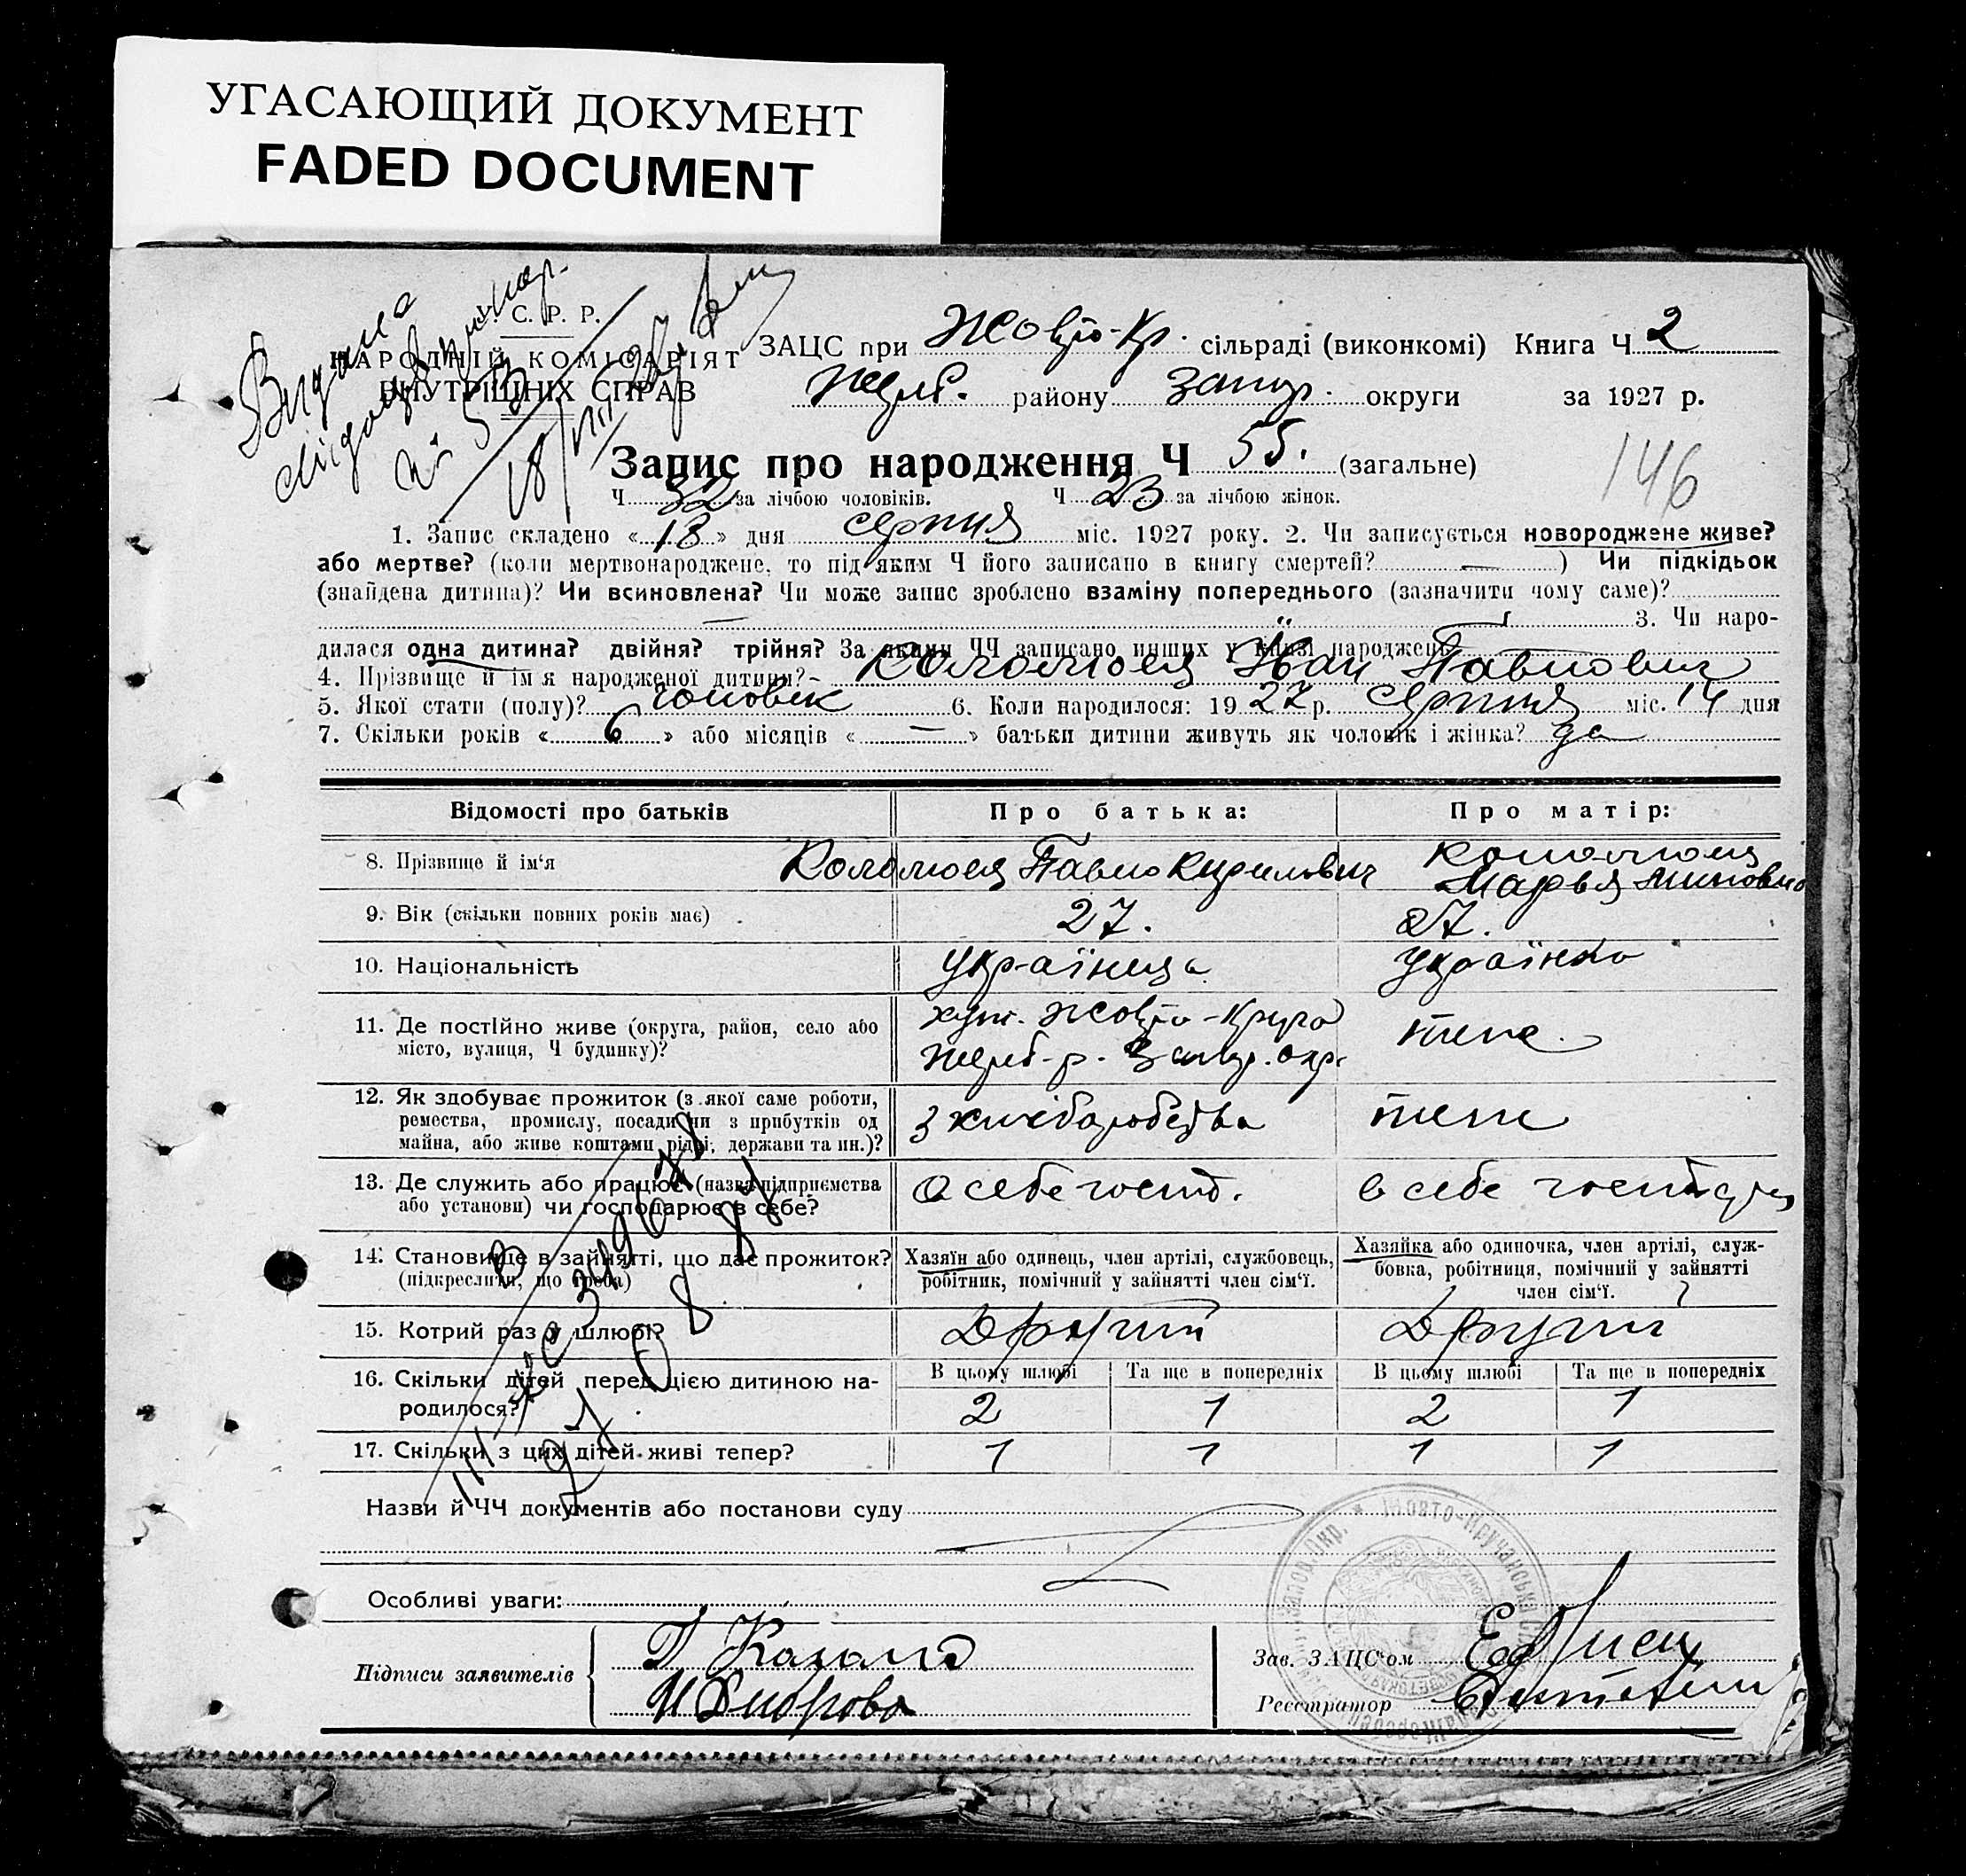 УГАСАЮЩИЙ ДОКУМЕНТ
FADED DOCUMENT
У. С. Р. Р.
НАРОДНІЙ КОМІСАРІЯТ
ВНУТРІШНІХ СПРАВ
ЗАЦС при Жовто-Кр. сільраді (виконкомі) Книга Ч 2
району Запор. округи за 1927 р.
Видано
18/VIII
Запис про народження Ч 55. (загальне)
146
Ч 32 за лічбою чоловіків. Ч 23 за лічбою жінок.
1. Запис складено «18» дня серпня міс. 1927 року. 2. Чи записується новороджене живе?
або мертве? (коли мертвонароджене, то під яким Ч його записано в книгу смертей? — ) Чи підкідьок
(знайдена дитина)? Чи всиновлена? Чи може запис зроблено взаміну попереднього (зазначити чому саме)?
— 3. Чи наро-
дилася одна дитина? двійня? трійня? За якими ЧЧ записано инших у книзі народжень
4. Прізвище й ім'я народженої дитини?- Іван Павлович
5. Якої стати (полу)? чоловік 6. Коли народилося: 1927 р. серпня міс. 14 дня
7. Скільки років «6» або місяців «—» батьки дитини живуть як чоловік і жінка? да
Відомості про батьків Про батька: Про матір:
8. Прізвище й ім'я Павло Кирилович Марья
9. Вік (скільки повних років має) 27. 27.
10. Національність українець українка
11. Де постійно живе (округа, район, село або
місто, вулиця, Ч будинку)?
хут. Жовто-Круча
р. Запор. окр.
теж.
12. Як здобуває прожиток (з якої саме роботи,
ремества, промислу, посади чи з прибутків од
майна, або живе коштами рідні, держави та ин.)?
з хліборобства теж
13. Де служить або працює (назва підприємства
або установи) чи господарює в себе?
в себе господ. в себе
14. Становище в зайнятті, що дає прожиток?
(підкреслити, що треба)
Хазяїн або одинець, член артілі, службовець,
робітник, помічний у зайнятті член сім'ї.
Хазяйка або одиночка, член артілі, служ-
бовка, робітниця, помічний у зайнятті
член сім'ї.
15. Котрий раз у шлюбі? Другий Другий
16. Скільки дітей перед цією дитиною на-
родилося?
В цьому шлюбі Та ще в попередніх В цьому шлюбі Та ще в попередніх
2 1 2 1
17. Скільки з цих дітей живі тепер? 1 1 1 1
Назви й ЧЧ документів або постанови суду
Особливі уваги:
Підписи заявителів
Зав. ЗАЦС'ом
Реєстратор